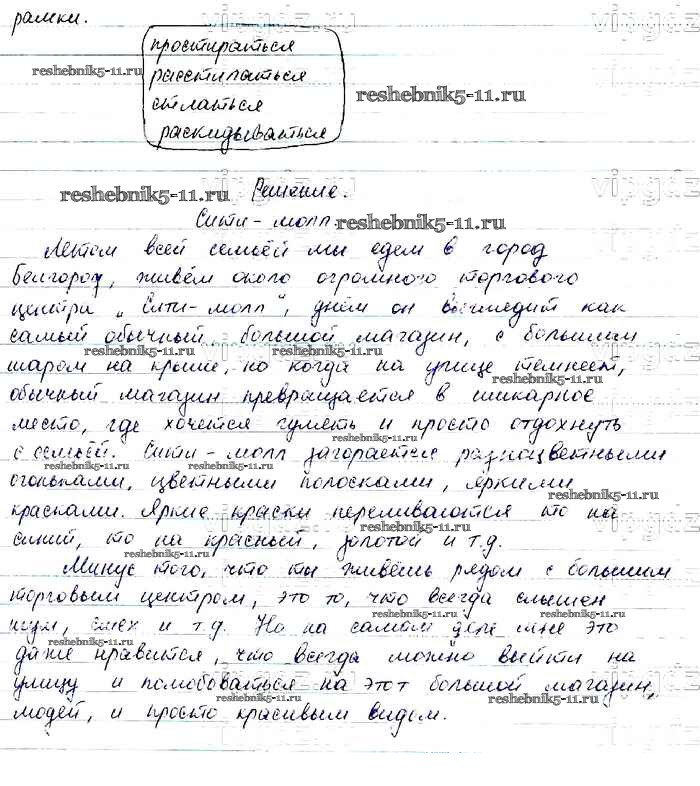 рамки.
простираться
расстилаться
стлаться
раскидываться
Решение.
Сити-молл.
Летом всей семьёй мы едем в город
Белгород, живём около огромного торгового
центра "Сити-молл", днём он выглядит как
самый обычный большой магазин, с большим
шаром на крыше, но когда на улице темнеет,
обычный магазин превращается в шикарное
место, где хочется гулять и просто отдохнуть
с семьёй. Сити-молл загорается разноцветными
огоньками, цветными полосками, яркими
красками. Яркие краски переливаются то на
синий, то на красный, золотой и т.д.
Минус того, что ты живёшь рядом с большим
торговым центром, это то, что всегда слышен
шум, смех и т.д. Но на самом деле мне это
даже нравится, что всегда можно выйти на
улицу и полюбоваться на этот большой магазин,
людей, и просто красивым видом.